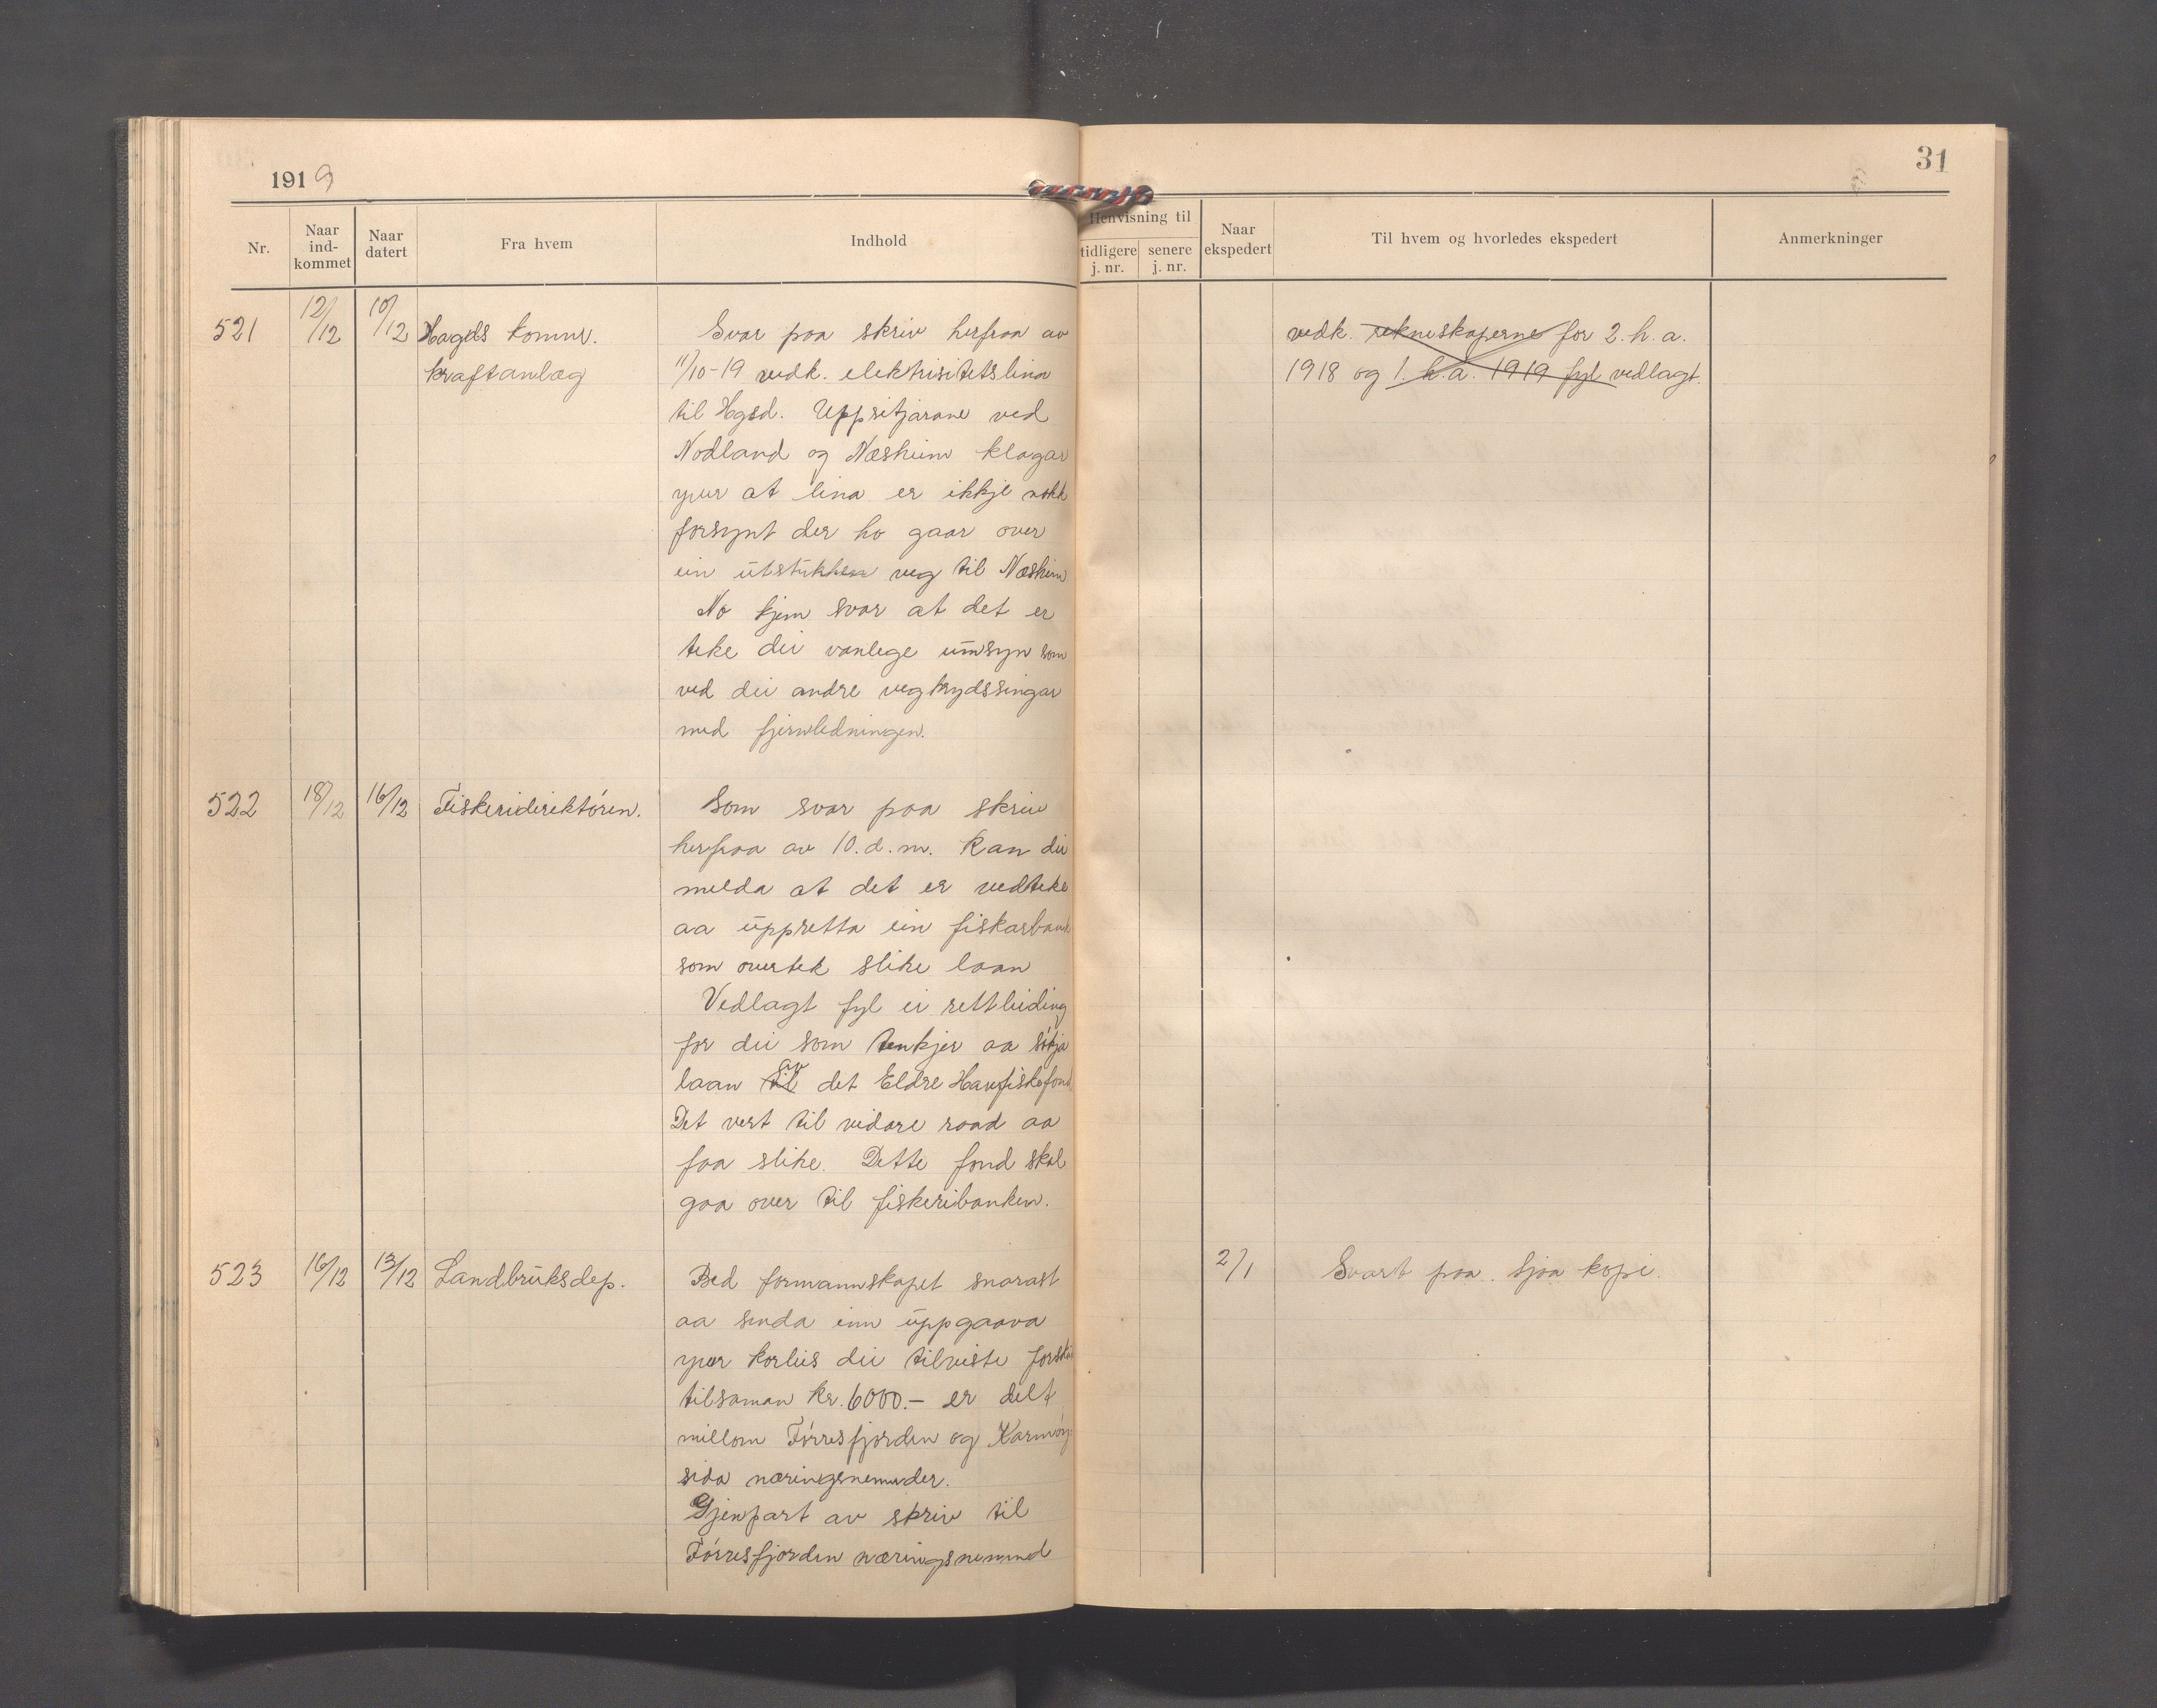 1919
31
Nr.
Naar ind-kommet
Naar datert
Fra hvem
Indhold
Henvisning til
tidligere j. nr.
senere j. nr.
Naar ekspedert
Til hvem og hvorledes ekspedert
Anmerkninger
521
12/12
10/12
Hagds komm.
kraftanlæg
Svar paa skriv herfraa av
11/10-19 vedk. elektrisitetslina
til Hgsd. Uppsitjarane ved
Nodland og Næsheim klagar
yver at lina er ikkje nokk
forsynt der ho gaar over
ein utstukken veg til Næsheim
No kjem svar at det er
teke dei vanlege umsyn som
ved dei andre vegkrydssingar
med fjernledningen.
vedk. rekneskaperne for 2. h. a.
1918 og 1. h. a. 1919 fyl vedlagt.
522
18/12
16/12
Fiskeridirektóren.
Som svar paa skriv
herfraa av 10. d. m. kan dei
melda at det er vedteke
aa uppretta ein fiskarbank
som overtek slike laan
Vedlagt fyl ei rettleiding
for dei som tenkjer aa sókja
laan til av det Eldre Havfiskefond
Det vert til vidare raad aa
faa slike. Dette fond skal
gaa over til fiskeribanken.
523
16/12
13/12
Landbruksdep.
Bed formannskapet snarast
aa senda inn uppgaava
yver korleis dei tilviste
tilsaman kr. 6000.- er delt
millom Tórresfjorden og Karmóy-
sida næringsnemnder.
Gjenpart av skriv til
Tórresfjorden næringsnemnd
2/1
Svart paa. Sjaa kopi.